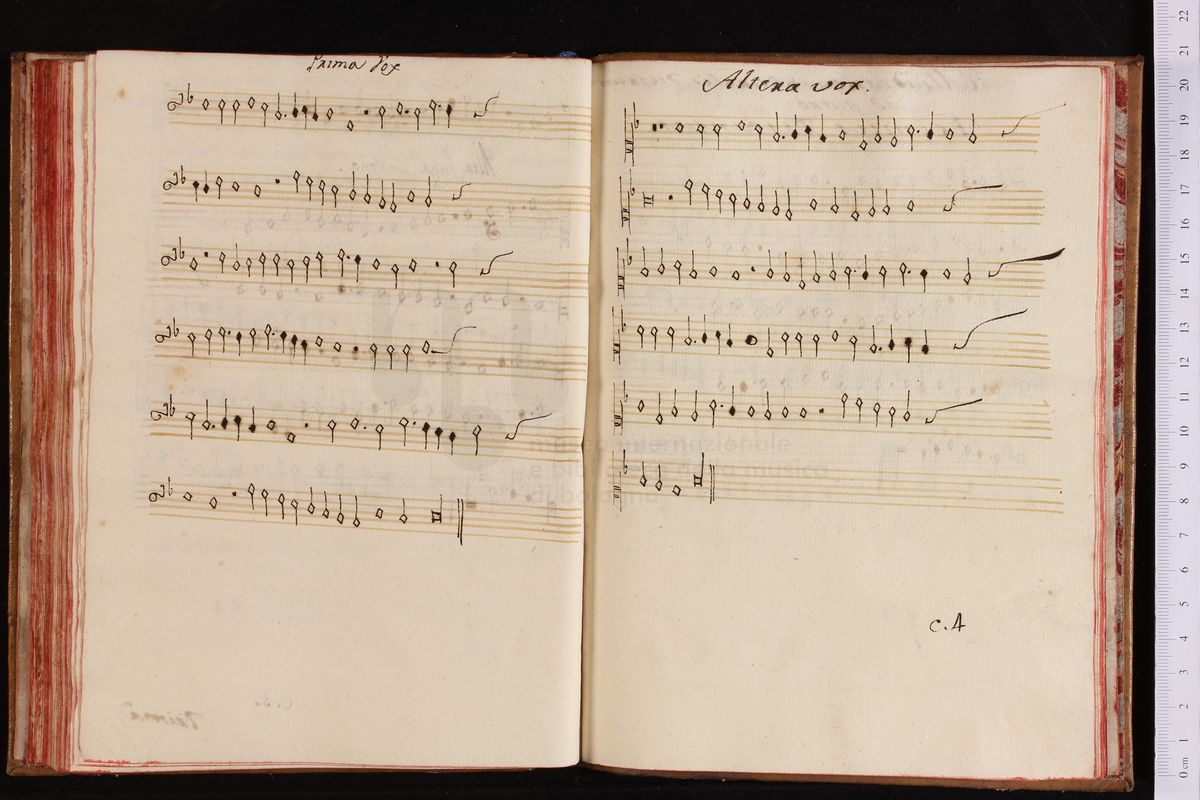 Prima Vox
Altera vox.
c. A
museo internazionale
e biblioteca della
di bologna
22
21
20
19
18
17
16
15
14
13
12
11
10
9
8
7
6
5
4
3
2
1
0 cm